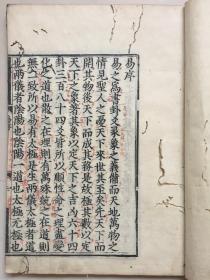 易序
易之為書卦爻彖象之義備而天地萬物之
情見聖人之憂天下來世其至矣先天下而
開其物後天下而成其務是故極其數以定
天下之象著其象以定天下之吉凶六十四
卦三百八十四爻皆所以順性命之理盡變
化之道也散之在理則有萬殊統之在道則
無二致所以易有太極是生兩儀太極者道
也兩儀者陰陽也陰陽一道也太極无極也